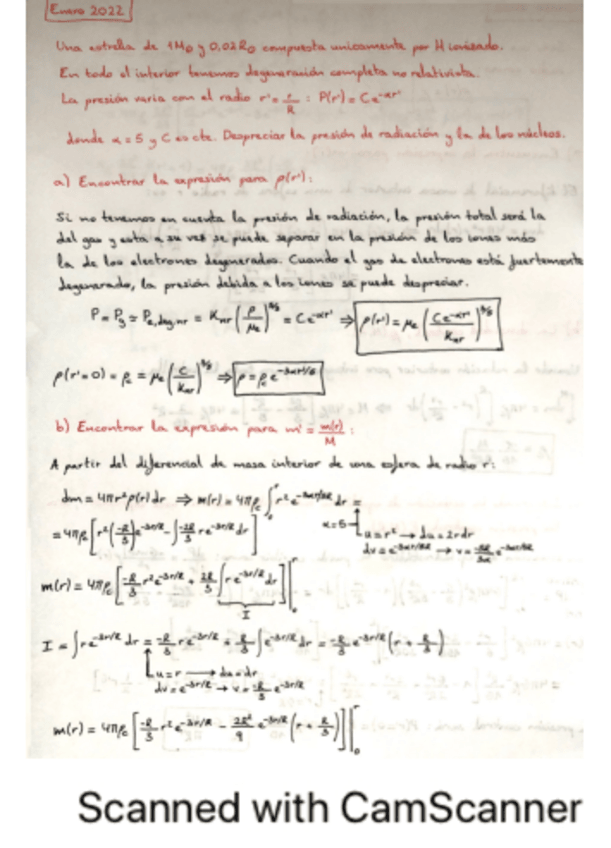 Enero 2022
Una estrella de 1M⊙ y 0,02R⊙ compuesta unicamente por H ionizado.
En todo el interior tenemos degeneración completa no relativista.
La presión varia con el radio r' = r/R : P(r') = Ce^-αr'
donde α = 5 y C es cte. Despreciar la presión de radiación y la de los núcleos.
a) Encontrar la expresión para ρ(r'):
Si no tenemos en cuenta la presión de radiación, la presión total será la
del gas y esta a su vez se puede separar en la presión de los iones más
la de los electrones degenerados. Cuando el gas de electrones está fuertemente
degenerado, la presión debida a los iones se puede despreciar.
P = Pg = Pe,deg,nr = Knr (ρ/μe)^5/3 = Ce^-αr' ⇒ ρ(r') = μe (Ce^-αr'/Knr)^3/5
ρ(r'=0) = ρc = μe (C/Knr)^3/5 ⇒ ρ = ρc e^-3αr'/5
b) Encontrar la expresión para m' = m(r)/M :
A partir del diferencial de masa interior de una esfera de radio r:
dm = 4πr²ρ(r)dr ⇒ m(r) = 4πρc ∫₀^r r² e^-3αr/5R dr =
α=5
u = r² → du = 2rdr
dv = e^-3αr/5R → v = -5R/3α e^-3αr/5R
= 4πρc [r² (-R/3) e^-3r/R - ∫ -2R/3 r e^-3r/R dr]
m(r) = 4πρc [-R/3 r² e^-3r/R + 2R/3 ∫ r e^-3r/R dr] |₀^r
I
I = ∫ r e^-3r/R dr = -R/3 r e^-3r/R + R/3 ∫ e^-3r/R dr = -R/3 e^-3r/R (r + R/3)
u = r → du = dr
dv = e^-3r/R → v = -R/3 e^-3r/R
m(r) = 4πρc [-R/3 r² e^-3r/R - 2R²/9 e^-3r/R (r + R/3)] |₀^r
Scanned with CamScanner